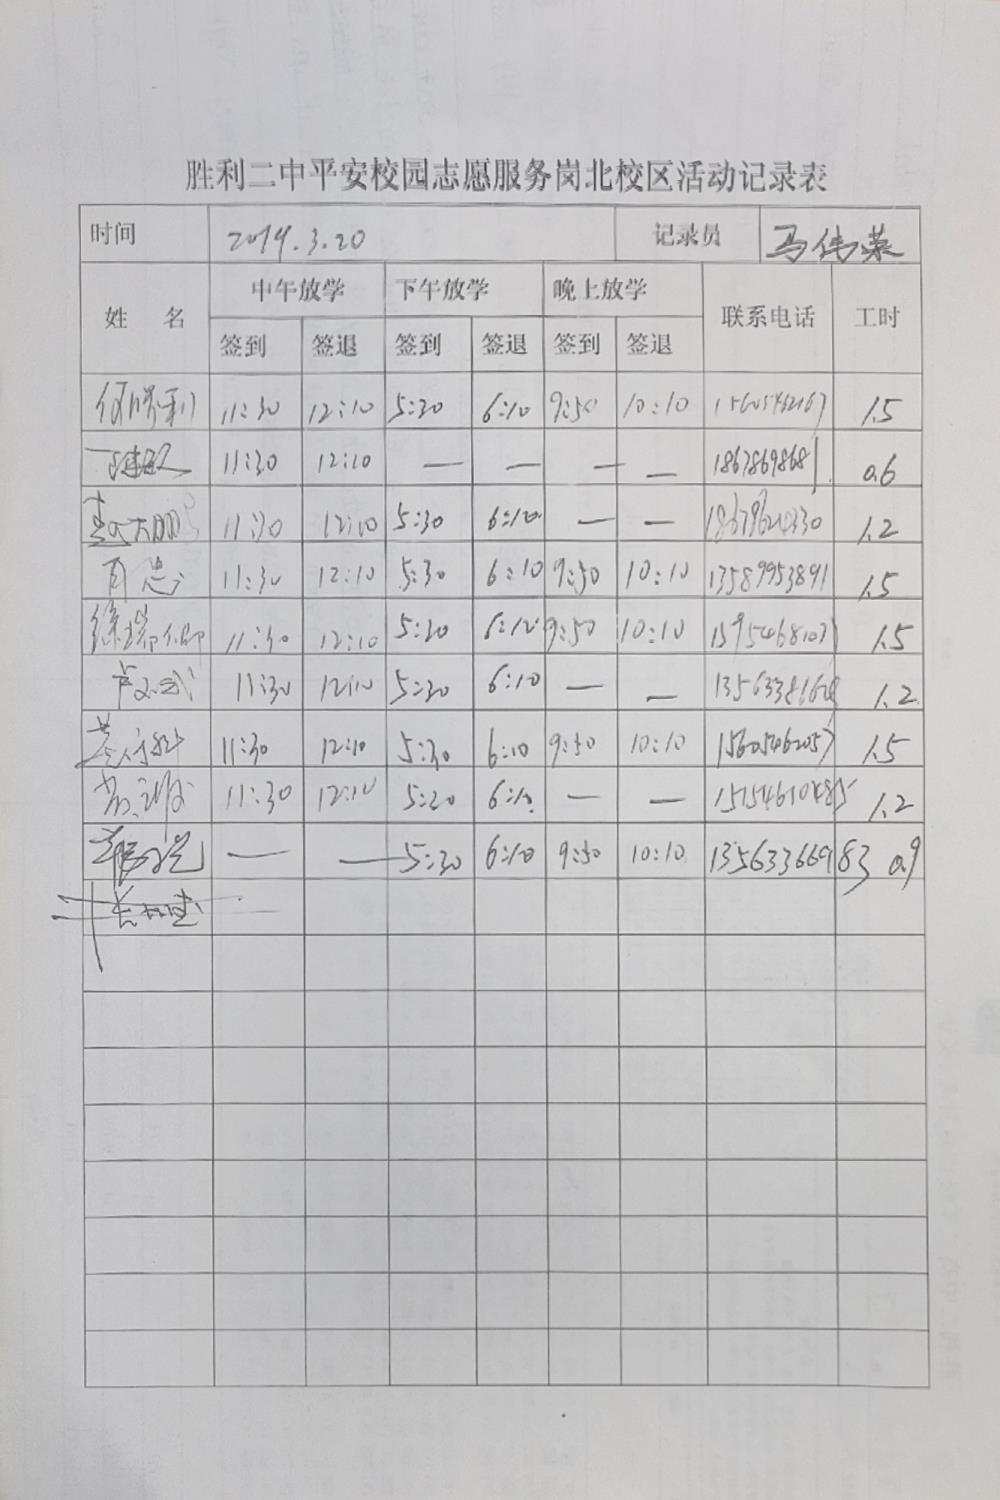 胜利二中平安校园志愿服务岗北校区活动记录表
时间 2019.3.20 记录员 马伟荣
姓 名 中午放学 下午放学 晚上放学 联系电话 工时
签到 签退 签到 签退 签到 签退
何胜利 11:30 12:10 5:30 6:10 9:50 10:10 1.5
11:30 12:10 — — — — 18678698681 0.6
11:30 12:10 5:30 6:10 — — 1.2
肖忠 11:30 12:10 5:30 6:10 9:50 10:10 13589953891 1.5
徐瑞卿 11:30 12:10 5:30 6:10 9:50 10:10 1.5
11:30 12:10 5:30 6:10 — — 1.2
11:30 12:10 5:30 6:10 9:50 10:10 15605462057 1.5
11:30 12:10 5:30 6:10 — — 1.2
— — 5:30 6:10 9:50 10:10 13563366983 0.9